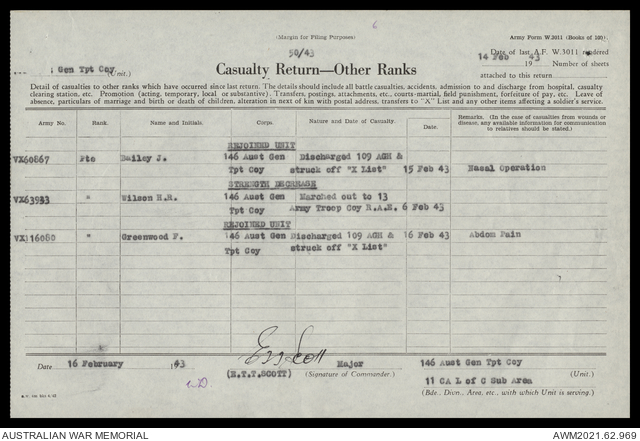 (Margin for Filing Purposes)
Army Form W.3011 (Books of 100).
50/43
Date of last A.F. W.3011 rendered
14 Feb 1943
Number of sheets
Gen Tpt Coy (Unit.)
Casualty Return—Other Ranks
attached to this return
Detail of casualties to other ranks which have occurred since last return. The details should include all battle casualties, accidents, admission to and discharge from hospital, casualty
clearing station, etc. Promotion (acting, temporary, local or substantive). Transfers, postings, attachments, etc., courts-martial, field punishment, forfeiture of pay, etc. Leave of
absence, particulars of marriage and birth or death of children, alteration in next of kin with postal address, transfers to "X" List and any other items affecting a soldier's service.
Army No. Rank. Name and Initials. Corps. Nature and Date of Casualty. Date. Remarks. (In the case of casualties from wounds or
disease, any available information for communication
to relatives should be stated.)
REJOINED UNIT
VX60867 Pte Bailey J. 146 Aust Gen Discharged 109 AGH &
Tpt Coy struck off "X List" 15 Feb 43 Nasal Operation
STRENGTH DECREASE
VX63933 " Wilson H.R. 146 Aust Gen Marched out to 13
Tpt Coy Army Troop Coy R.A.E. 6 Feb 43
REJOINED UNIT
VX116080 " Greenwood F. 146 Aust Gen Discharged 109 AGH & 16 Feb 43 Abdom Pain
Tpt Coy struck off "X List"
Date 16 February 1943 Major 146 Aust Gen Tpt Coy
(E.T.T.SCOTT) (Signature of Commander.) (Unit.)
11 CA L of C Sub Area
(Bde., Divn., Area, etc., with which Unit is serving.)
AUSTRALIAN WAR MEMORIAL AWM2021.62.969